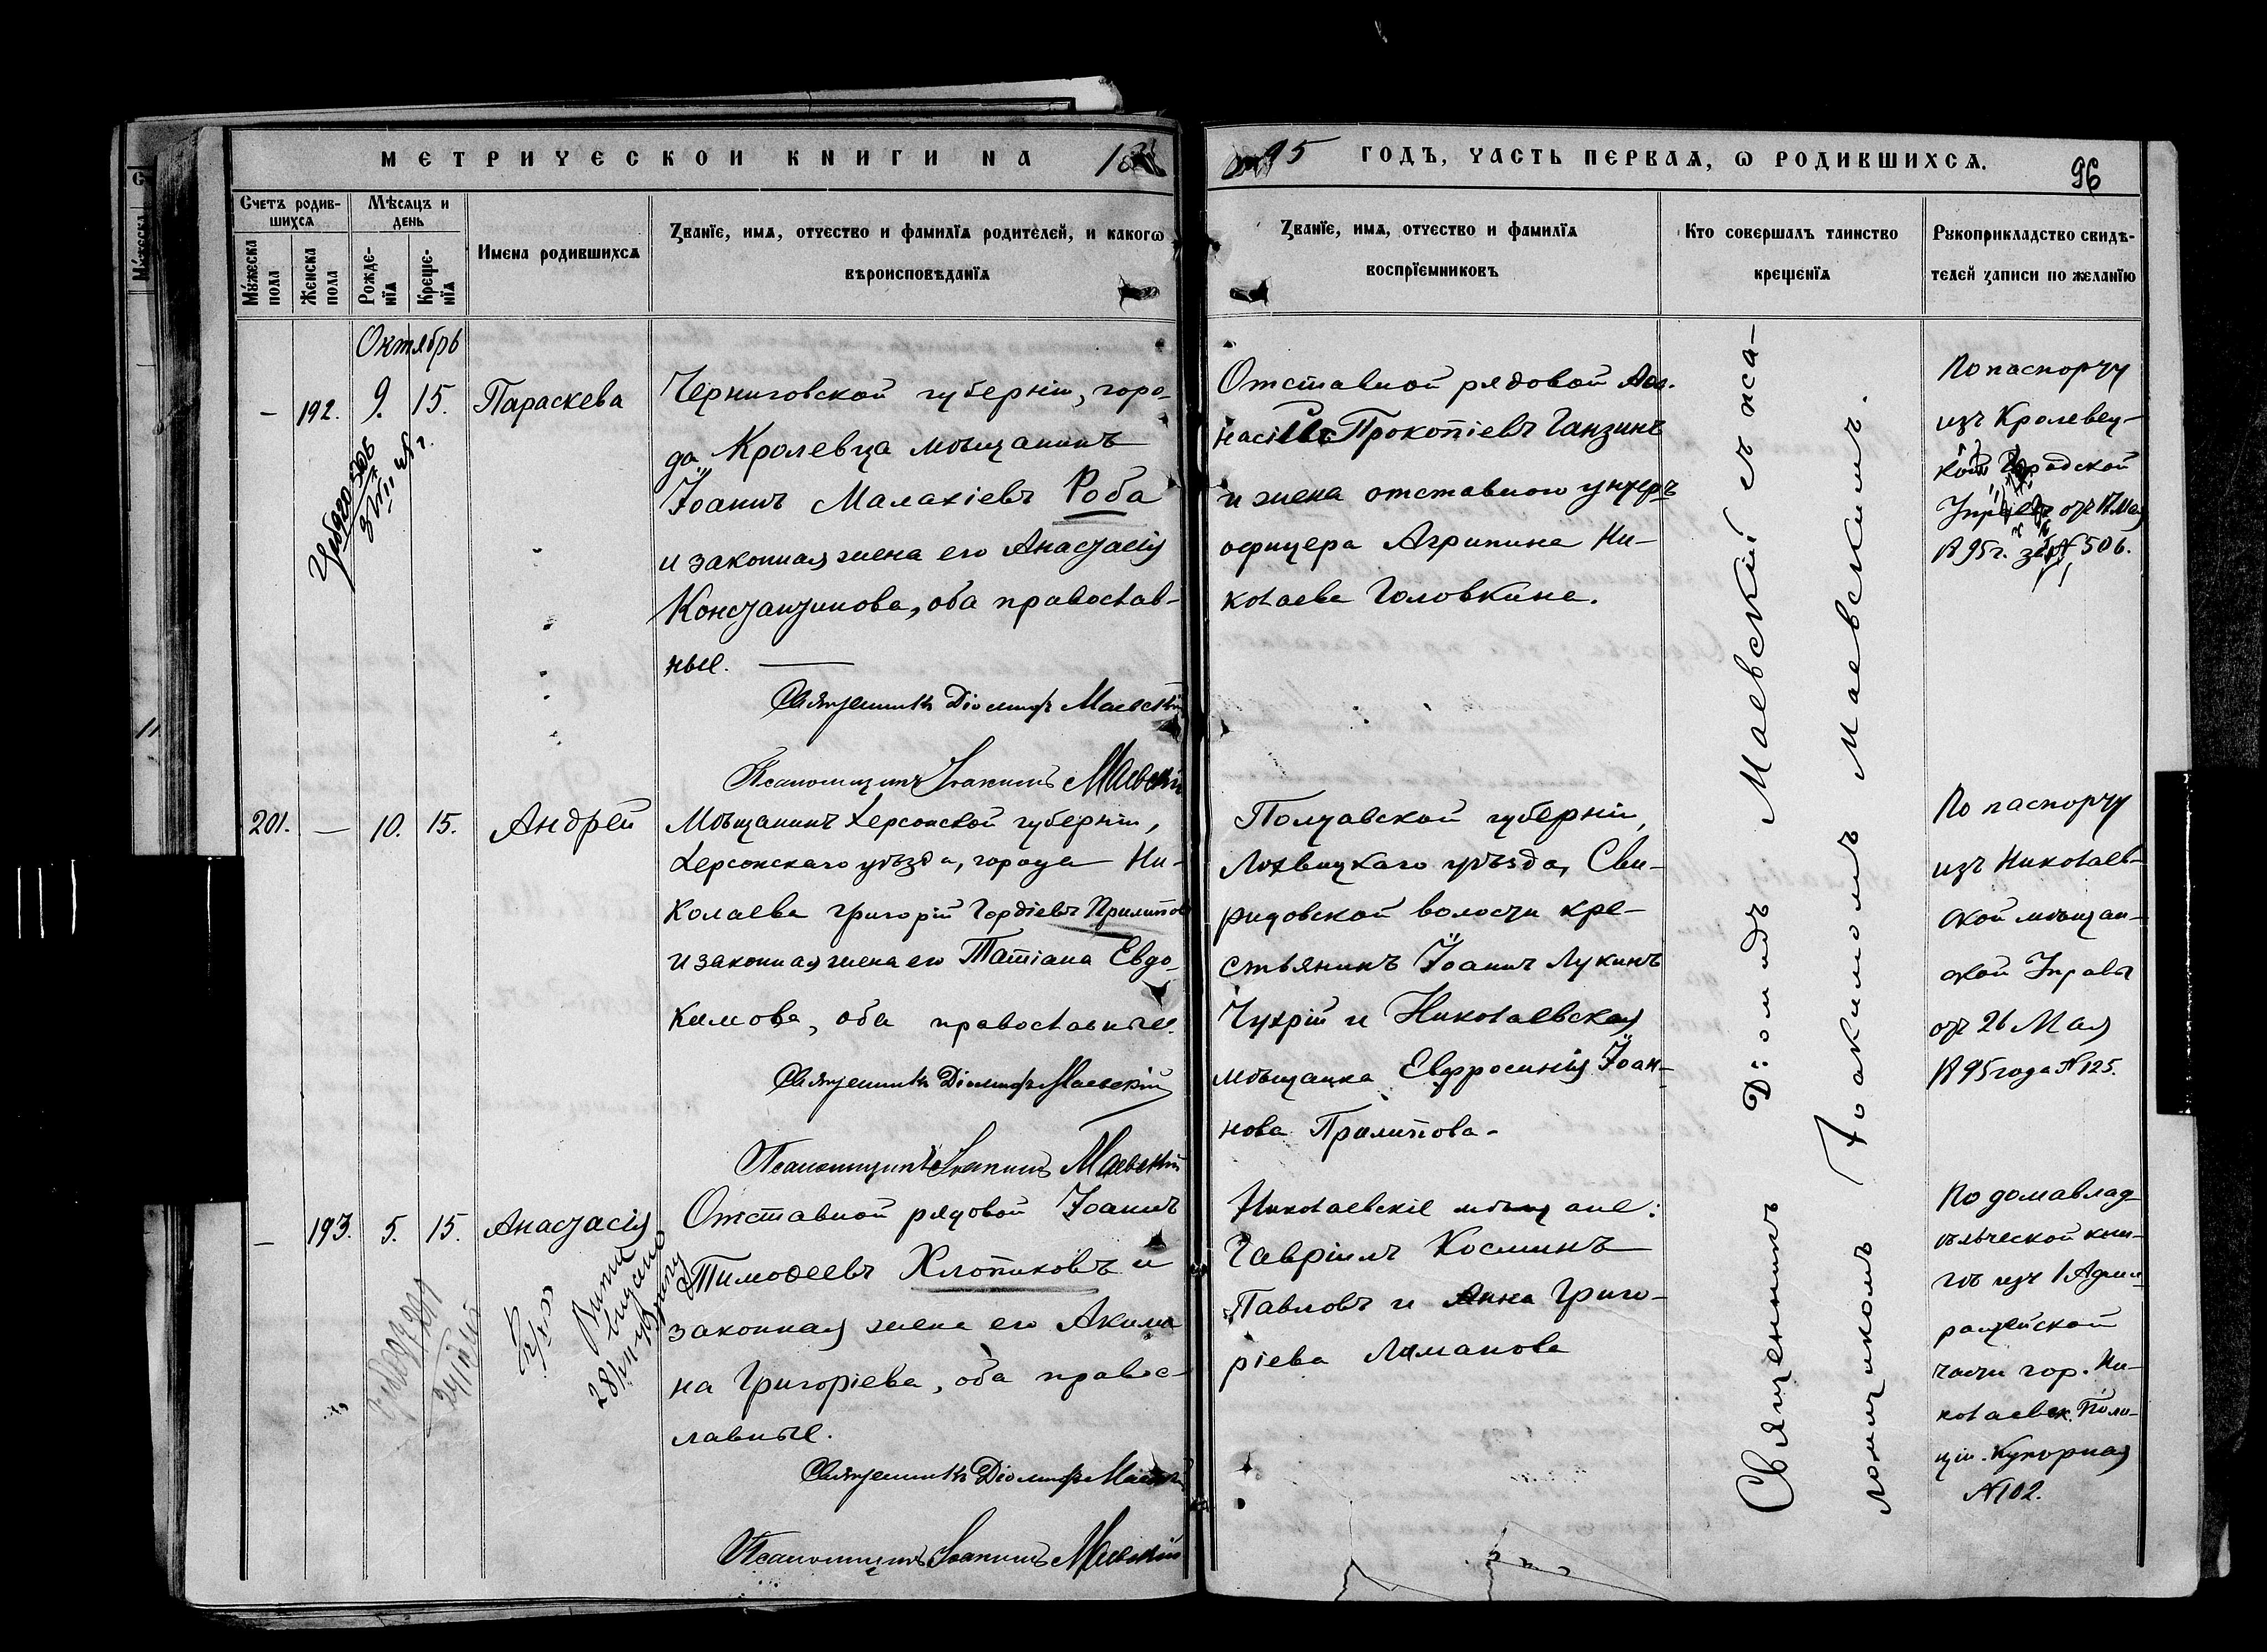 МЕТРИЧЕСКОЙ КНИГИ НА 18
95 ГОДЪ, ЧАСТЬ ПЕРВАЯ, Ѡ РОДИВШИХСЯ.
96
Счетъ родив-
шихся
Мужеска
пола
Женска
пола
Мѣсяцъ и
день
Рожде-
нїя
Креще-
нїя
Имена родившихся
Званїе, имя, отчество и фамилїя родителей, и какогѡ
вѣроисповѣданїя
Званїе, имя, отчество и фамилїя
воспрїемниковъ
Кто совершалъ таинство
крещенїя
Рукоприкладство свидѣ-
телей записи по желанїю
Октябрь
— 192. 9. 15. Параскева
Черниговской губерніи, горо-
да Кролевца мѣщанинъ
Іоаннъ Малахіевъ Роба
и законная жена его Анастасія
Константинова, оба православ-
ные.
Священникъ Діомидъ Маевскій
Псаломщикъ Іоакимъ Маевскій
Отставной рядовой
Прокопіевъ Ганзинъ
и жена отставного унтеръ
офицера Агрипина Ни-
колаева Головкина.
По паспорту
изъ Кролевец-
кой Городской
от 17 Мая
1895 г. за № 506.
201. — 10. 15. Андрей
Мѣщанинъ Херсонской губерніи,
Херсонскаго уѣзда, города Ни-
колаева Григорій Гордіевъ Прилипов
и законная жена его Татіана Евдо-
кимова, оба православные.
Священникъ Діомидъ Маевскій
Псаломщикъ Іоакимъ Маевскій
Полтавской губерніи,
Лохвицкаго уѣзда, Сви-
ридовской волости кре-
стьянинъ Іоаннъ Лукинъ
Чухрій и Николаевская
мѣщанка Евфросинія Іоан-
нова Прилипова-
По паспорту
изъ Николаев-
ской мѣщан-
ской Управы
отъ 26 Мая
1895 года № 125.
— 193. 5. 15. Анастасія
Отставной рядовой Іоаннъ
Тимофеевъ Хлопиковъ и
законная жена его Акили
на Григоріева, оба правос-
лавные.
Священникъ Діомидъ Маевскій
Псаломщикъ Іоакимъ Маевскій
Николаевскіе мѣщане:
Гавріилъ Косминъ
Павловъ и Анна Григо-
ріева Лиманова
По домавлад-
ѣльческой кни-
гѣ изъ 1 Адми-
ралтейской
части гор. Ни-
колаевск. Поли-
ціи. Купорная
№ 102.
Священникъ Діомидъ Маевскій съ пса-
ломщикомъ Іоакимомъ Маевскимъ.